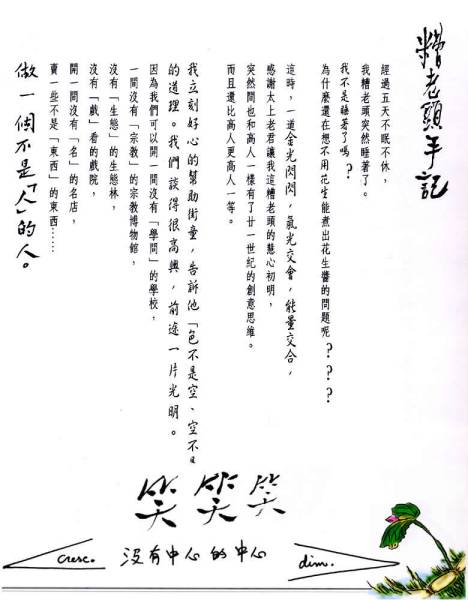 糟老頭手記
經過五天不眠不休，
我糟老頭突然睡著了。
我不是睡著了嗎？
為什麼還在想不用花生能煮出花生醬的問題呢？？？
這時，一道金光閃閃，氣光交會，能量交合，
感謝太上老君讓我這糟老頭的慧心初明，
突然間也和高人一樣有了廿一世紀的創意思維。
而且還比高人更高人一等。
我立刻好心的幫助街童，告訴他「色不是空、空不
的道理。我們談得很高興，前途一片光明。
因為我們可以開一間沒有「學問」的學校，
一間沒有「宗教」的宗教博物館，
沒有「生態」的生態林，
沒有「戲」看的戲院，
開一間沒有「名」的名店，
賣一些不是「東西」的東西……
做一個不是「人」的人。
笑 笑 笑
cresc. 沒有中心的中心 dim.